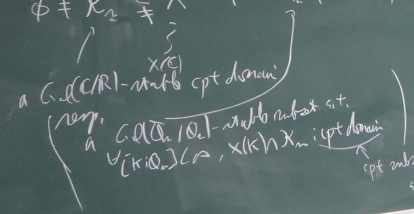 φ ≠ K_n ⊊ X
X(ℂ)
a Gal(ℂ/ℝ)-stable cpt domain
(resp.
a Gal(ℚ̄_v/ℚ_v)-stable subset s.t.
∀[K:ℚ_v]<∞, X(K)∩K_v : cpt domain
cpt subs